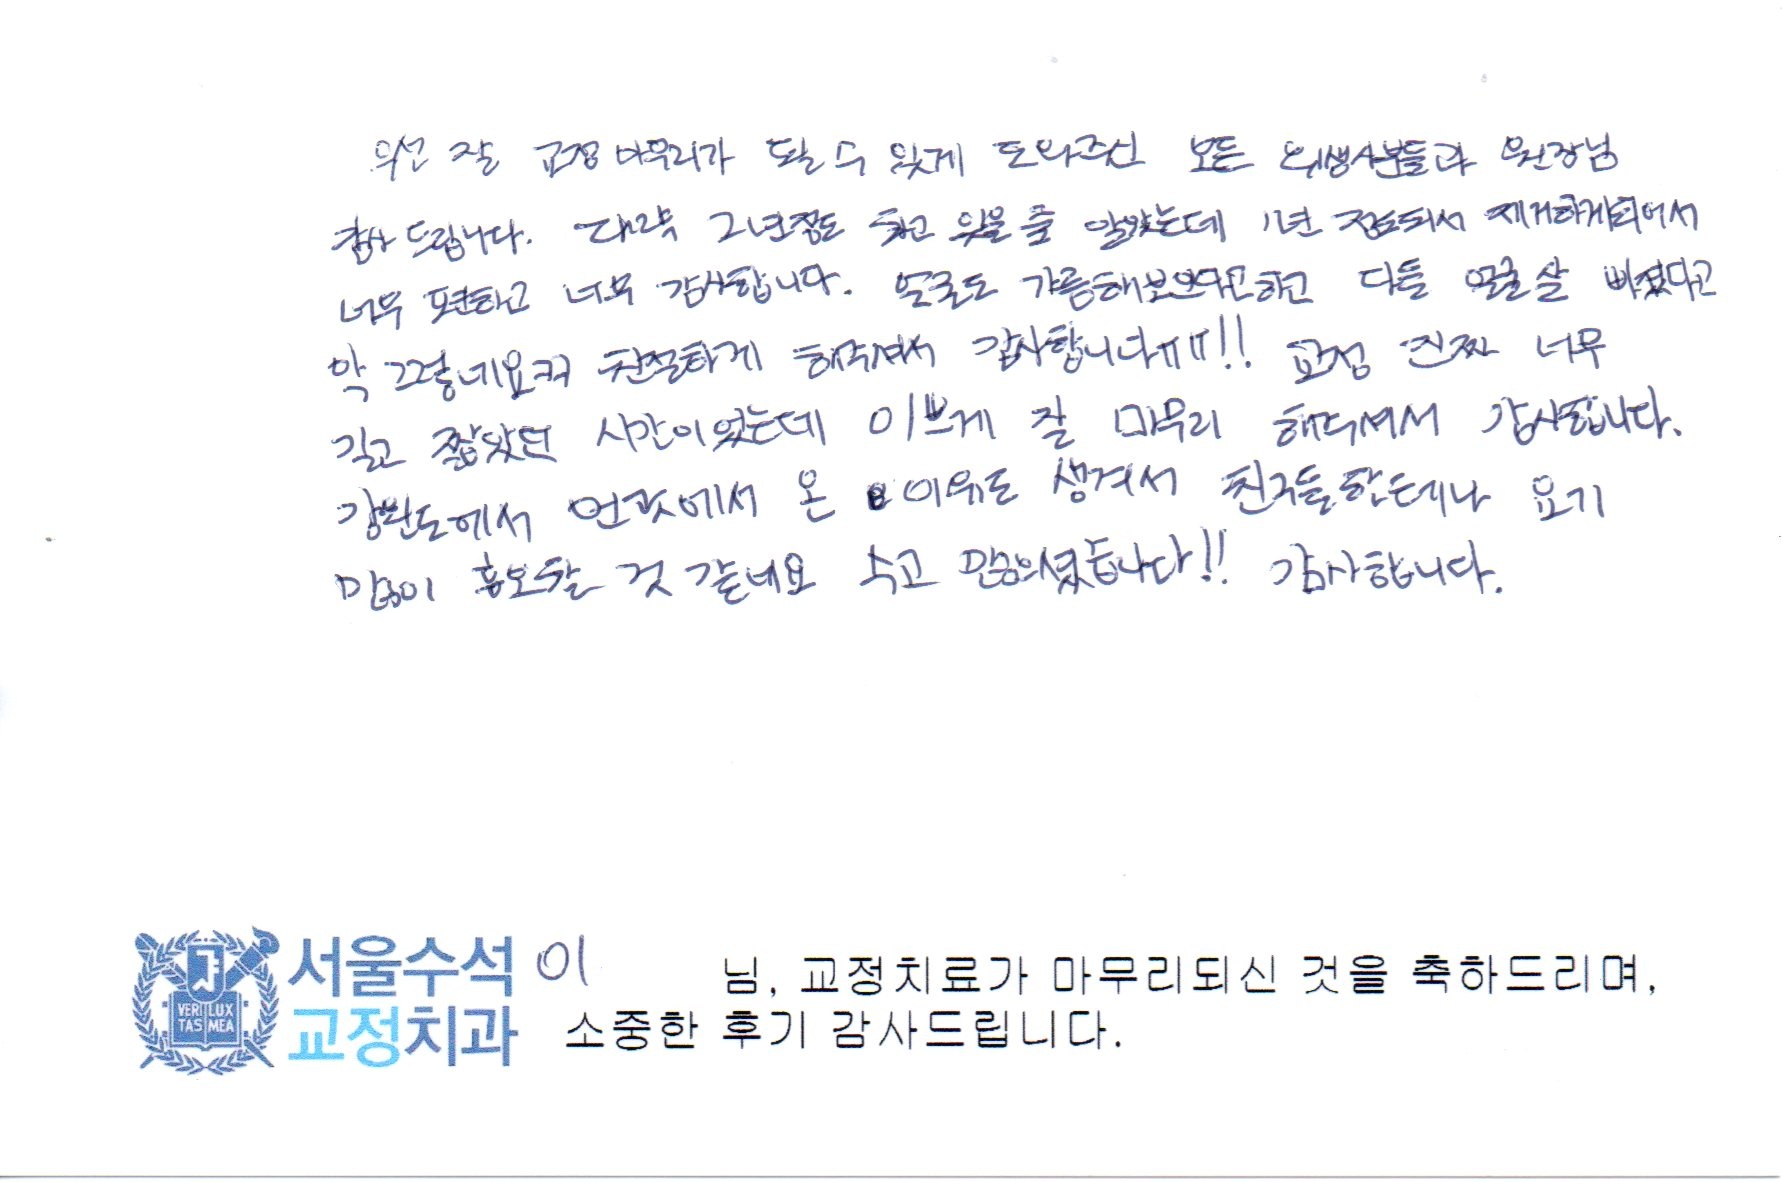 우선 잘 교정 마무리가 될 수 있게 도와주신 모든 위생사분들과 원장님
감사 드립니다. 대략 2년정도 하고 있을 줄 알았는데 1년 정도되서 제거하게되어서
너무 편하고 너무 감사합니다. 얼굴도 갸름해보인다고하고 다들 얼굴살 빠졌다고
막 그렇네요ㅋㅋ 친절하게 해주셔서 감사합니다ㅠㅠ!! 교정 진짜 너무
길고 짧았던 시간이었는데 이쁘게 잘 마무리 해주셔서 감사합니다.
강원도에서 먼곳에서 온 이유도 생겨서 친구들한테나 요기
많이 홍보할 것 같네요 수고 많으셨습니다!! 감사합니다.
VERI LUX
TAS MEA
서울수석 이 님, 교정치료가 마무리되신 것을 축하드리며,
교정치과 소중한 후기 감사드립니다.